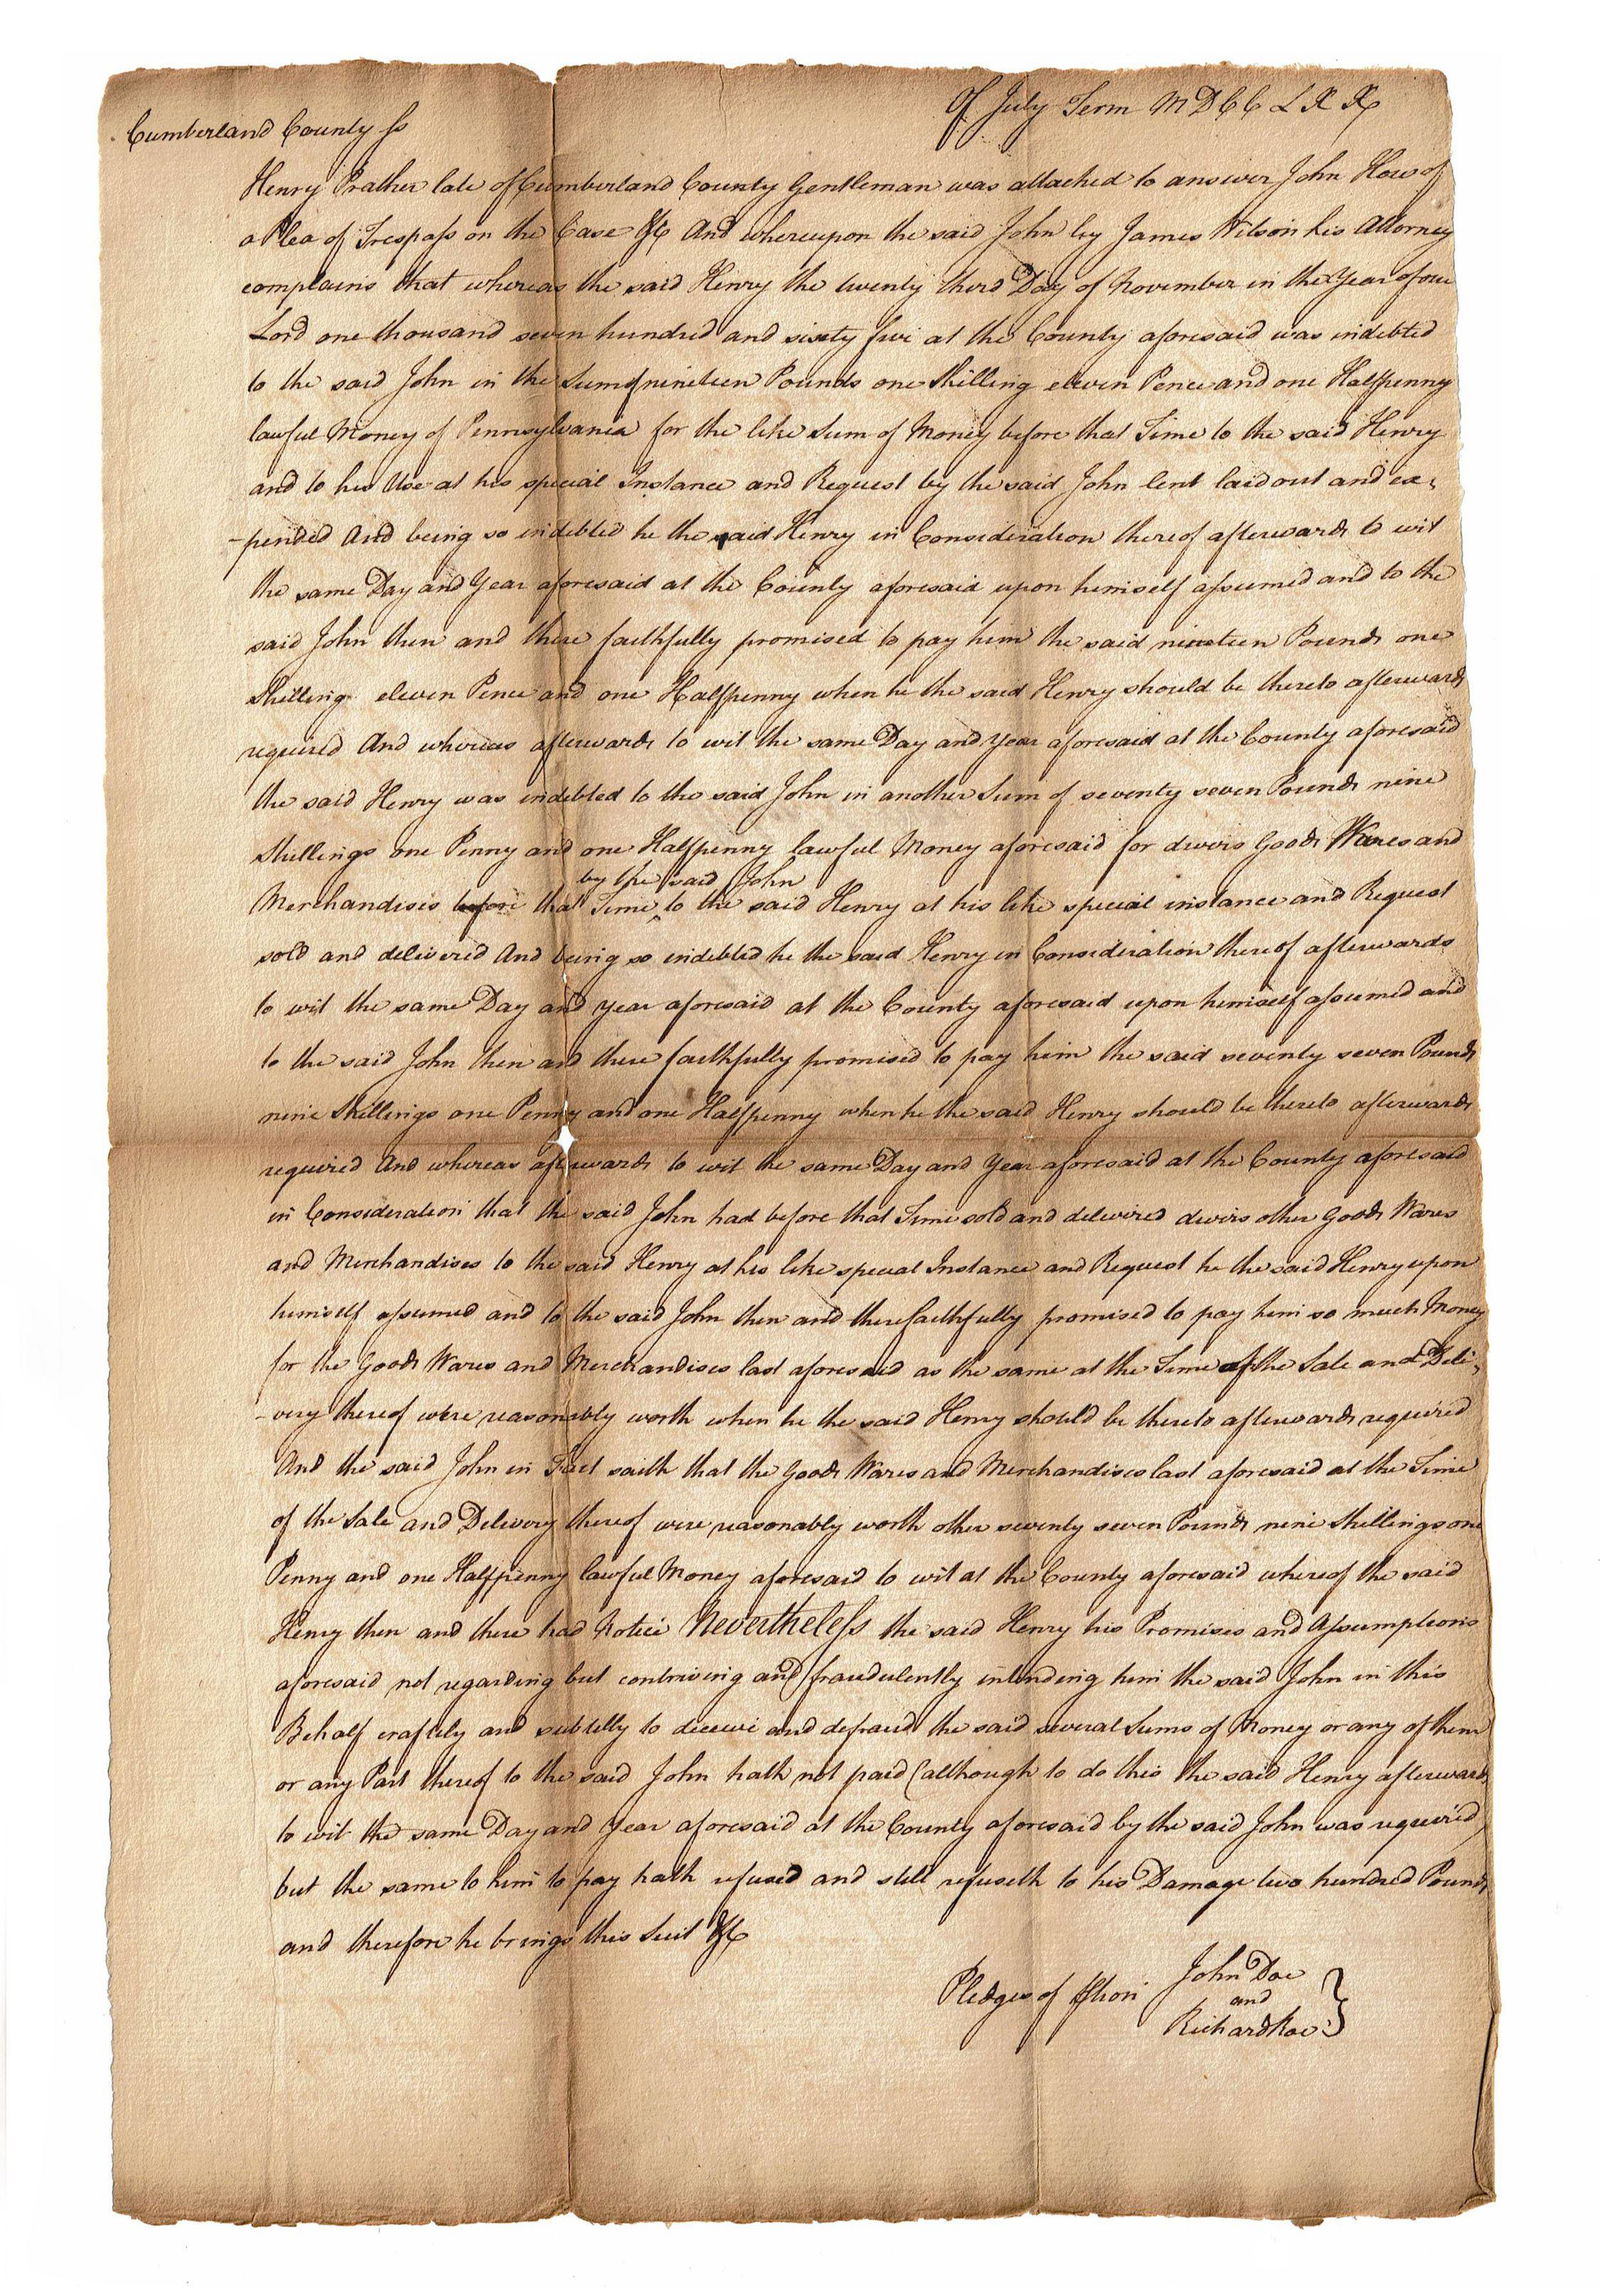 Of July Term MDCCLXX
Cumberland County ss
Henry Prather late of Cumberland County Gentleman was attached to answer John How of
a Plea of Trespass on the Case &c And whereupon the said John by James Wilson his Attorney
complains that whereas the said Henry the twenty third Day of November in the Year of our
Lord one thousand seven hundred and sixty five at the County aforesaid was indebted
to the said John in the Sum of nineteen Pounds one Shilling eleven Pence and one Halfpenny
lawful Money of Pennsylvania for the like Sum of Money before that Time to the said Henry
and to his Use at his special Instance and Request by the said John lent laid out and ex-
-pended And being so indebted he the said Henry in Consideration thereof afterwards to wit
the same Day and Year aforesaid at the County aforesaid upon himself assumed and to the
said John then and there faithfully promised to pay him the said nineteen Pounds one
Shilling eleven Pence and one Halfpenny when he the said Henry should be thereto afterwards
required And whereas afterwards to wit the same Day and Year aforesaid at the County aforesaid
the said Henry was indebted to the said John in another Sum of seventy seven Pounds nine
Shillings one Penny and one Halfpenny lawful Money aforesaid for divers Goods Wares and
by the said John
Merchandises before that Time to the said Henry at his like special instance and Request
sold and delivered And being so indebted he the said Henry in Consideration thereof afterwards
to wit the same Day and year aforesaid at the County aforesaid upon himself assumed and
to the said John then and there faithfully promised to pay him the said seventy seven Pounds
nine Shillings one Penny and one Halfpenny when he the said Henry should be thereto afterwards
required And whereas afterwards to wit the same Day and Year aforesaid at the County aforesaid
in Consideration that the said John had before that Time sold and delivered divers other Goods Wares
and Merchandises to the said Henry at his like special Instance and Request he the said Henry upon
himself assumed and to the said John then and there faithfully promised to pay him so much Money
for the Goods Wares and Merchandises last aforesaid as the same at the Time of the Sale and Deli-
-very thereof were reasonably worth when he the said Henry should be thereto afterwards required
And the said John in Fact saith that the Goods Wares and Merchandises last aforesaid at the Time
of the Sale and Delivery thereof were reasonably worth other seventy seven Pounds nine Shillings one
Penny and one Halfpenny lawful Money aforesaid to wit at the County aforesaid whereof the said
Henry then and there had Notice Nevertheless the said Henry his Promises and Assumptions
aforesaid not regarding but contriving and fraudulently intending him the said John in this
Behalf craftily and subtilly to deceive and defraud the said several Sums of Money or any of them
or any Part thereof to the said John hath not paid (although to do this the said Henry afterwards
to wit the same Day and Year aforesaid at the County aforesaid by the said John was required)
but the same to him to pay hath refused and still refuseth to his Damage two hundred Pounds
and therefore he brings this Suit &c
Pledges of John Doe
and
Richard Roe